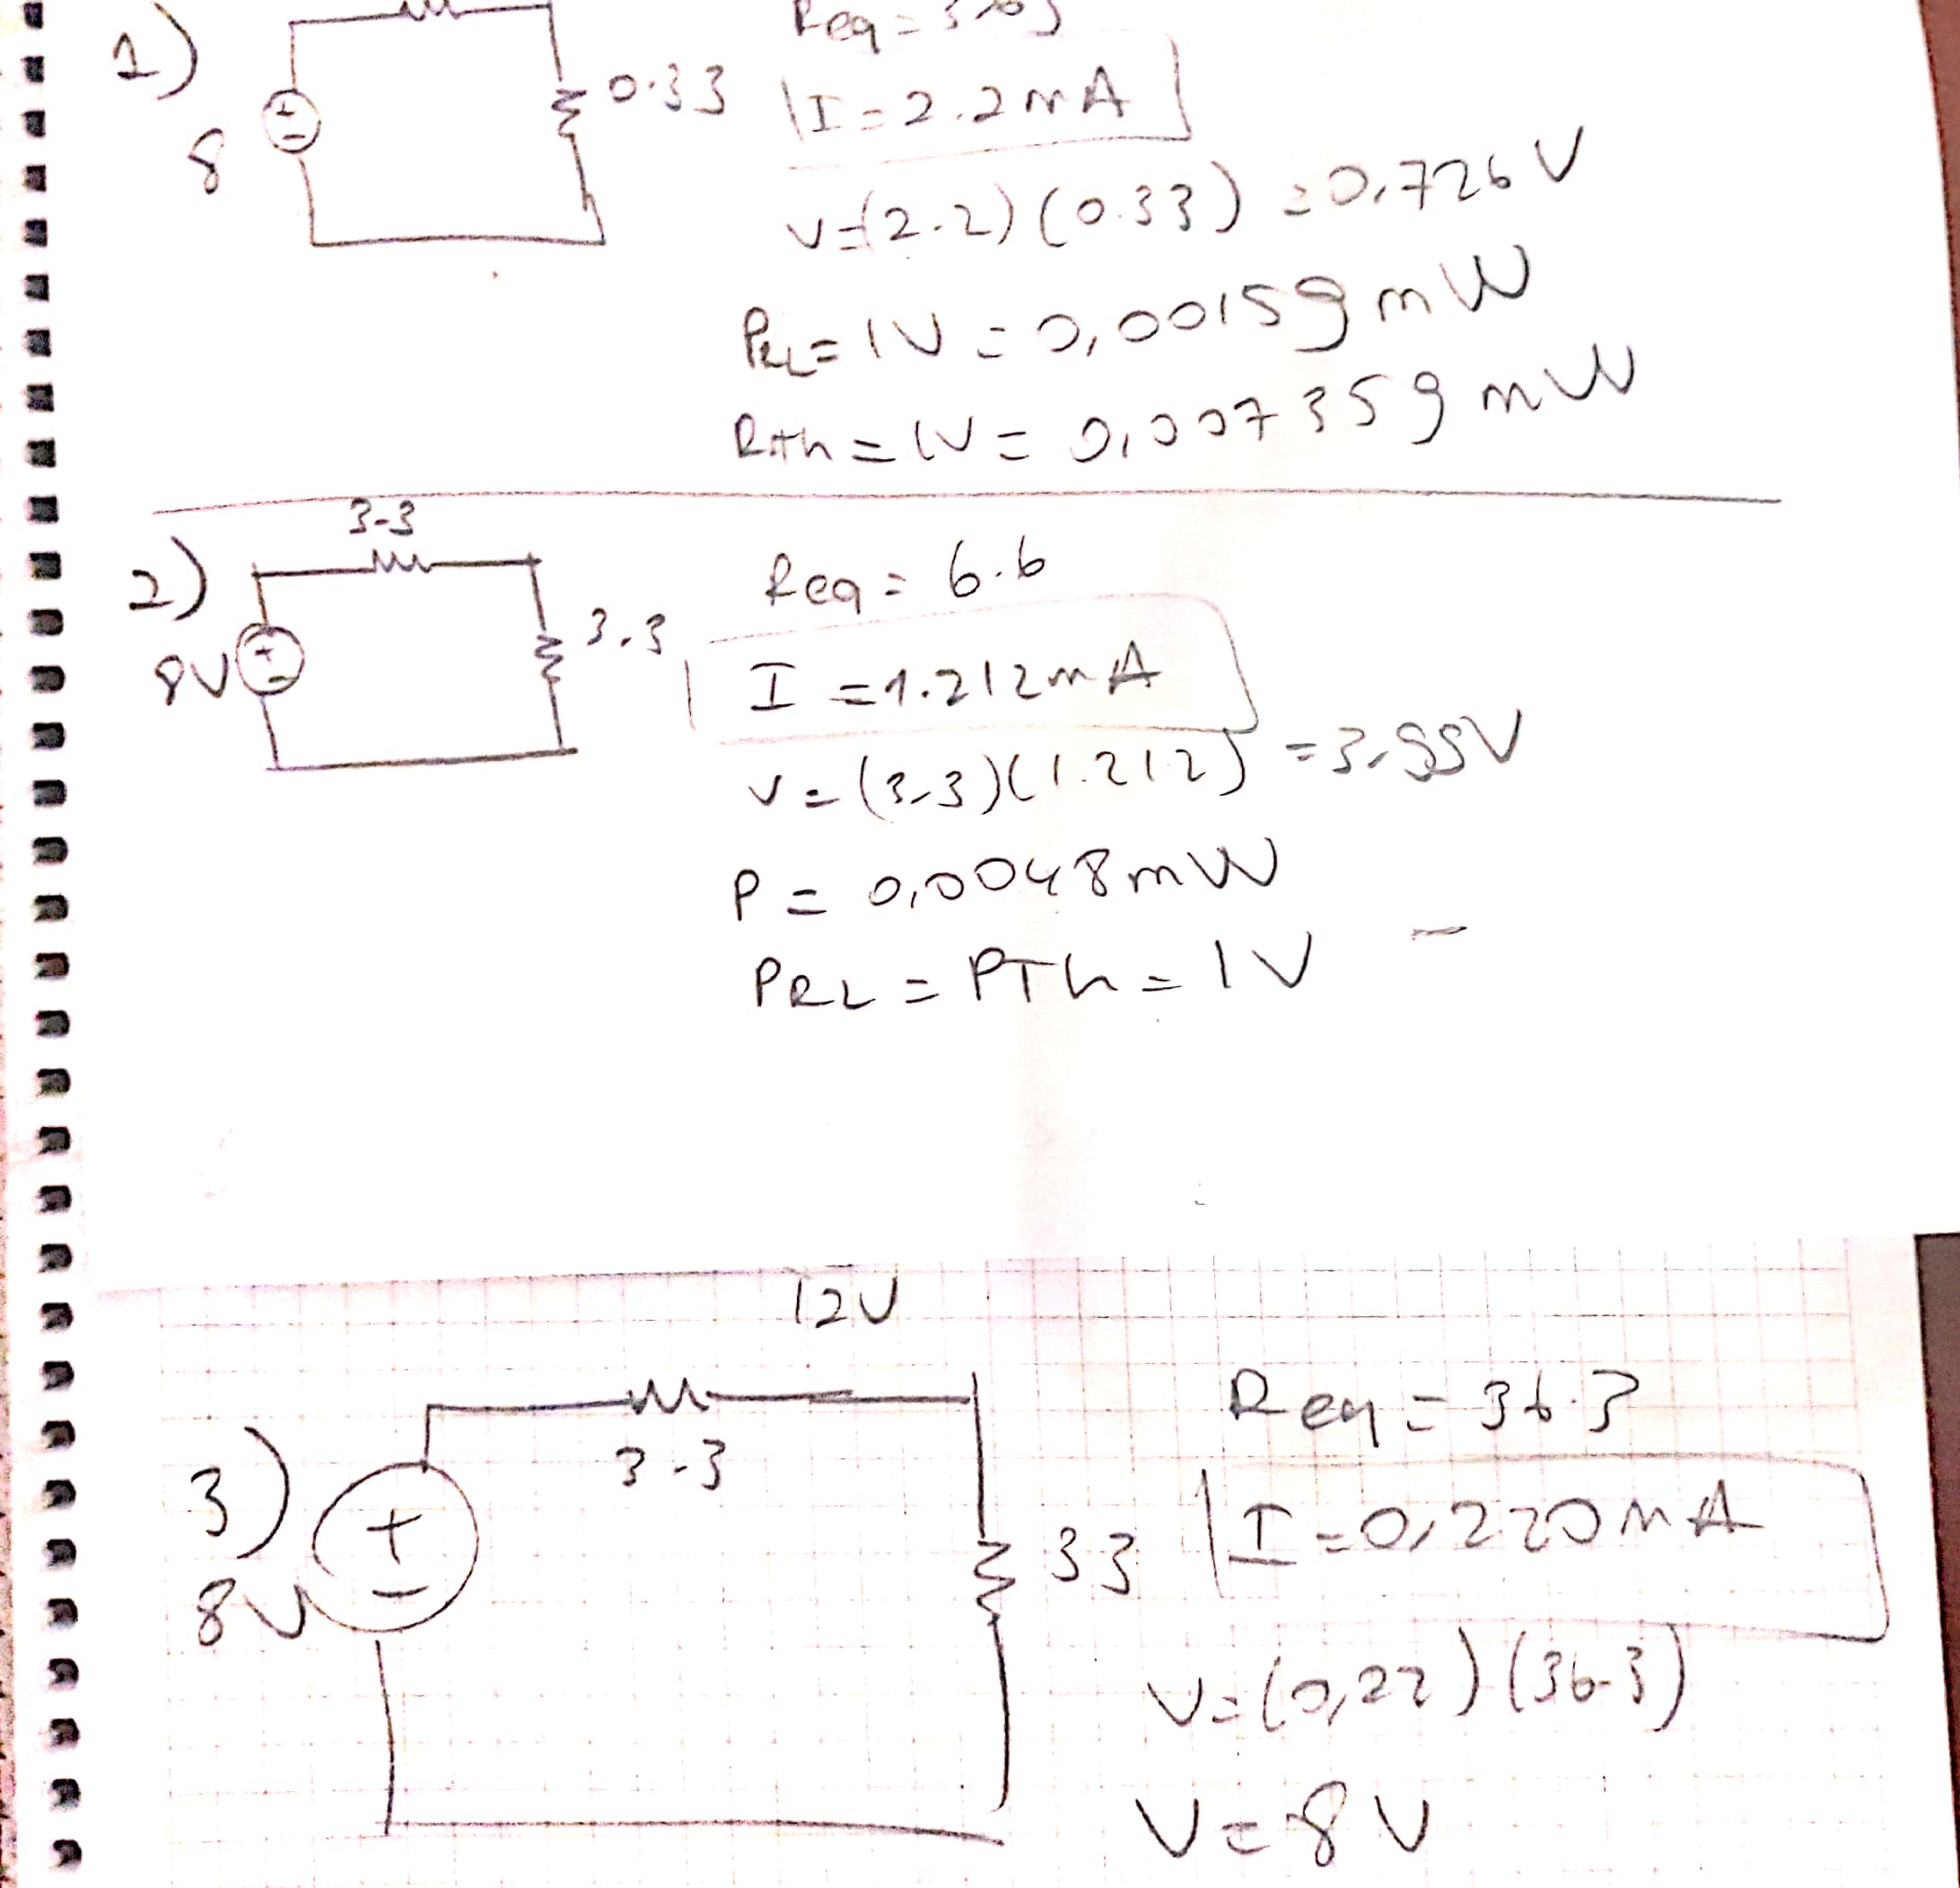 1)
8
0.33
Req = 3.63
I = 2.2 mA
V=(2.2)(0.33) = 0,726 V
PRL = IV = 0,00159 mW
Rth = IV = 0,007359 mW
2)
3.3
8V
3.3
Req = 6.6
I = 1.212 mA
V = (3.3)(1.212) = 3,99V
P = 0,0048 mW
PRL = PTh = IV
12V
3)
8V
3.3
33
Req = 36.3
I = 0,220 mA
V=(0,22)(36.3)
V = 8V